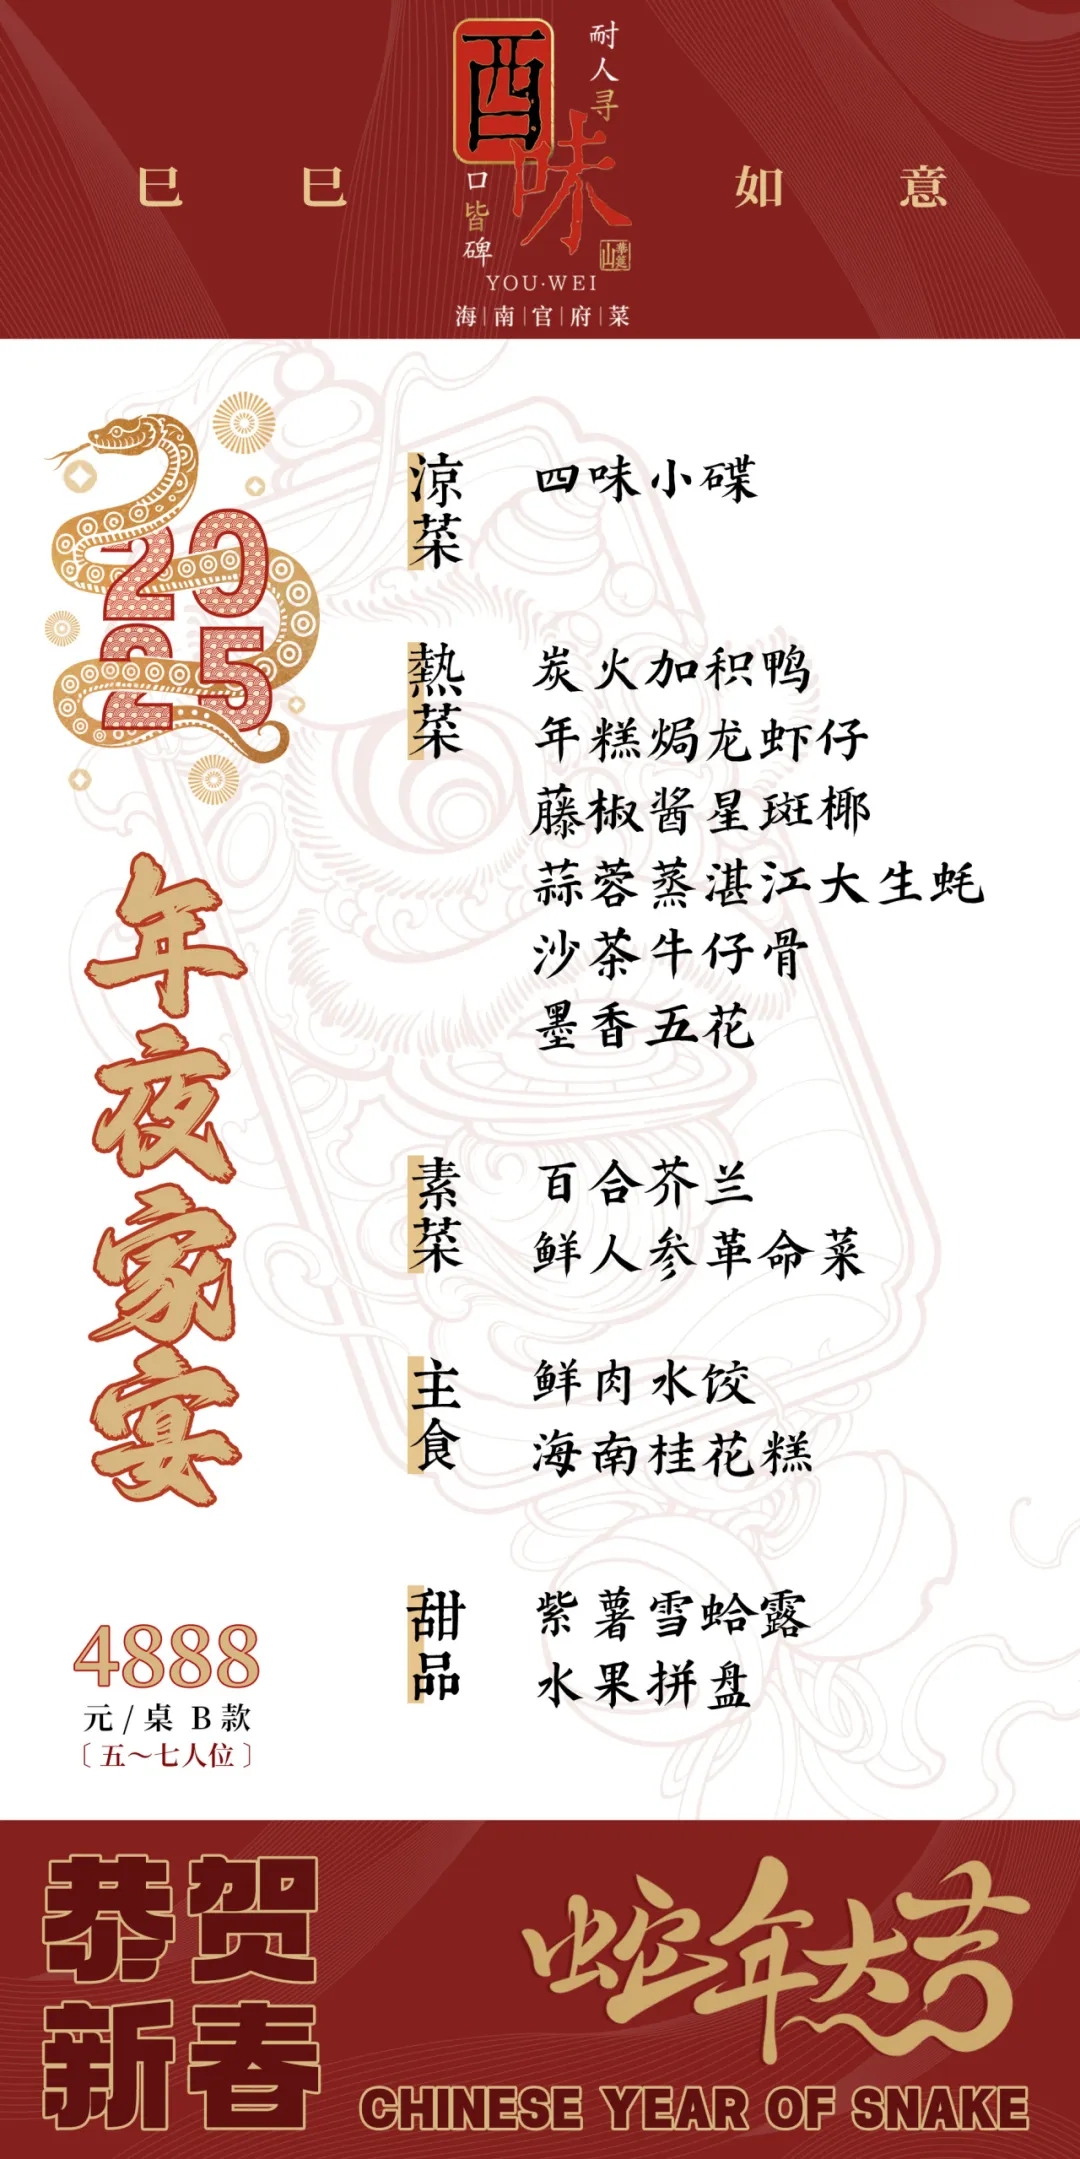 巳巳如意
耐人寻
酉味
口皆碑
華筵山
YOU·WEI
海|南|官|府|菜
2025
年夜家宴
涼菜
四味小碟
熱菜
炭火加积鸭
年糕焗龙虾仔
藤椒酱星斑椰
蒜蓉蒸湛江大生蚝
沙茶牛仔骨
墨香五花
素菜
百合芥兰
鲜人参革命菜
主食
鲜肉水饺
海南桂花糕
甜品
紫薯雪蛤露
水果拼盘
4888
元/桌 B款
〔五～七人位〕
恭贺
新春
蛇年大吉
CHINESE YEAR OF SNAKE